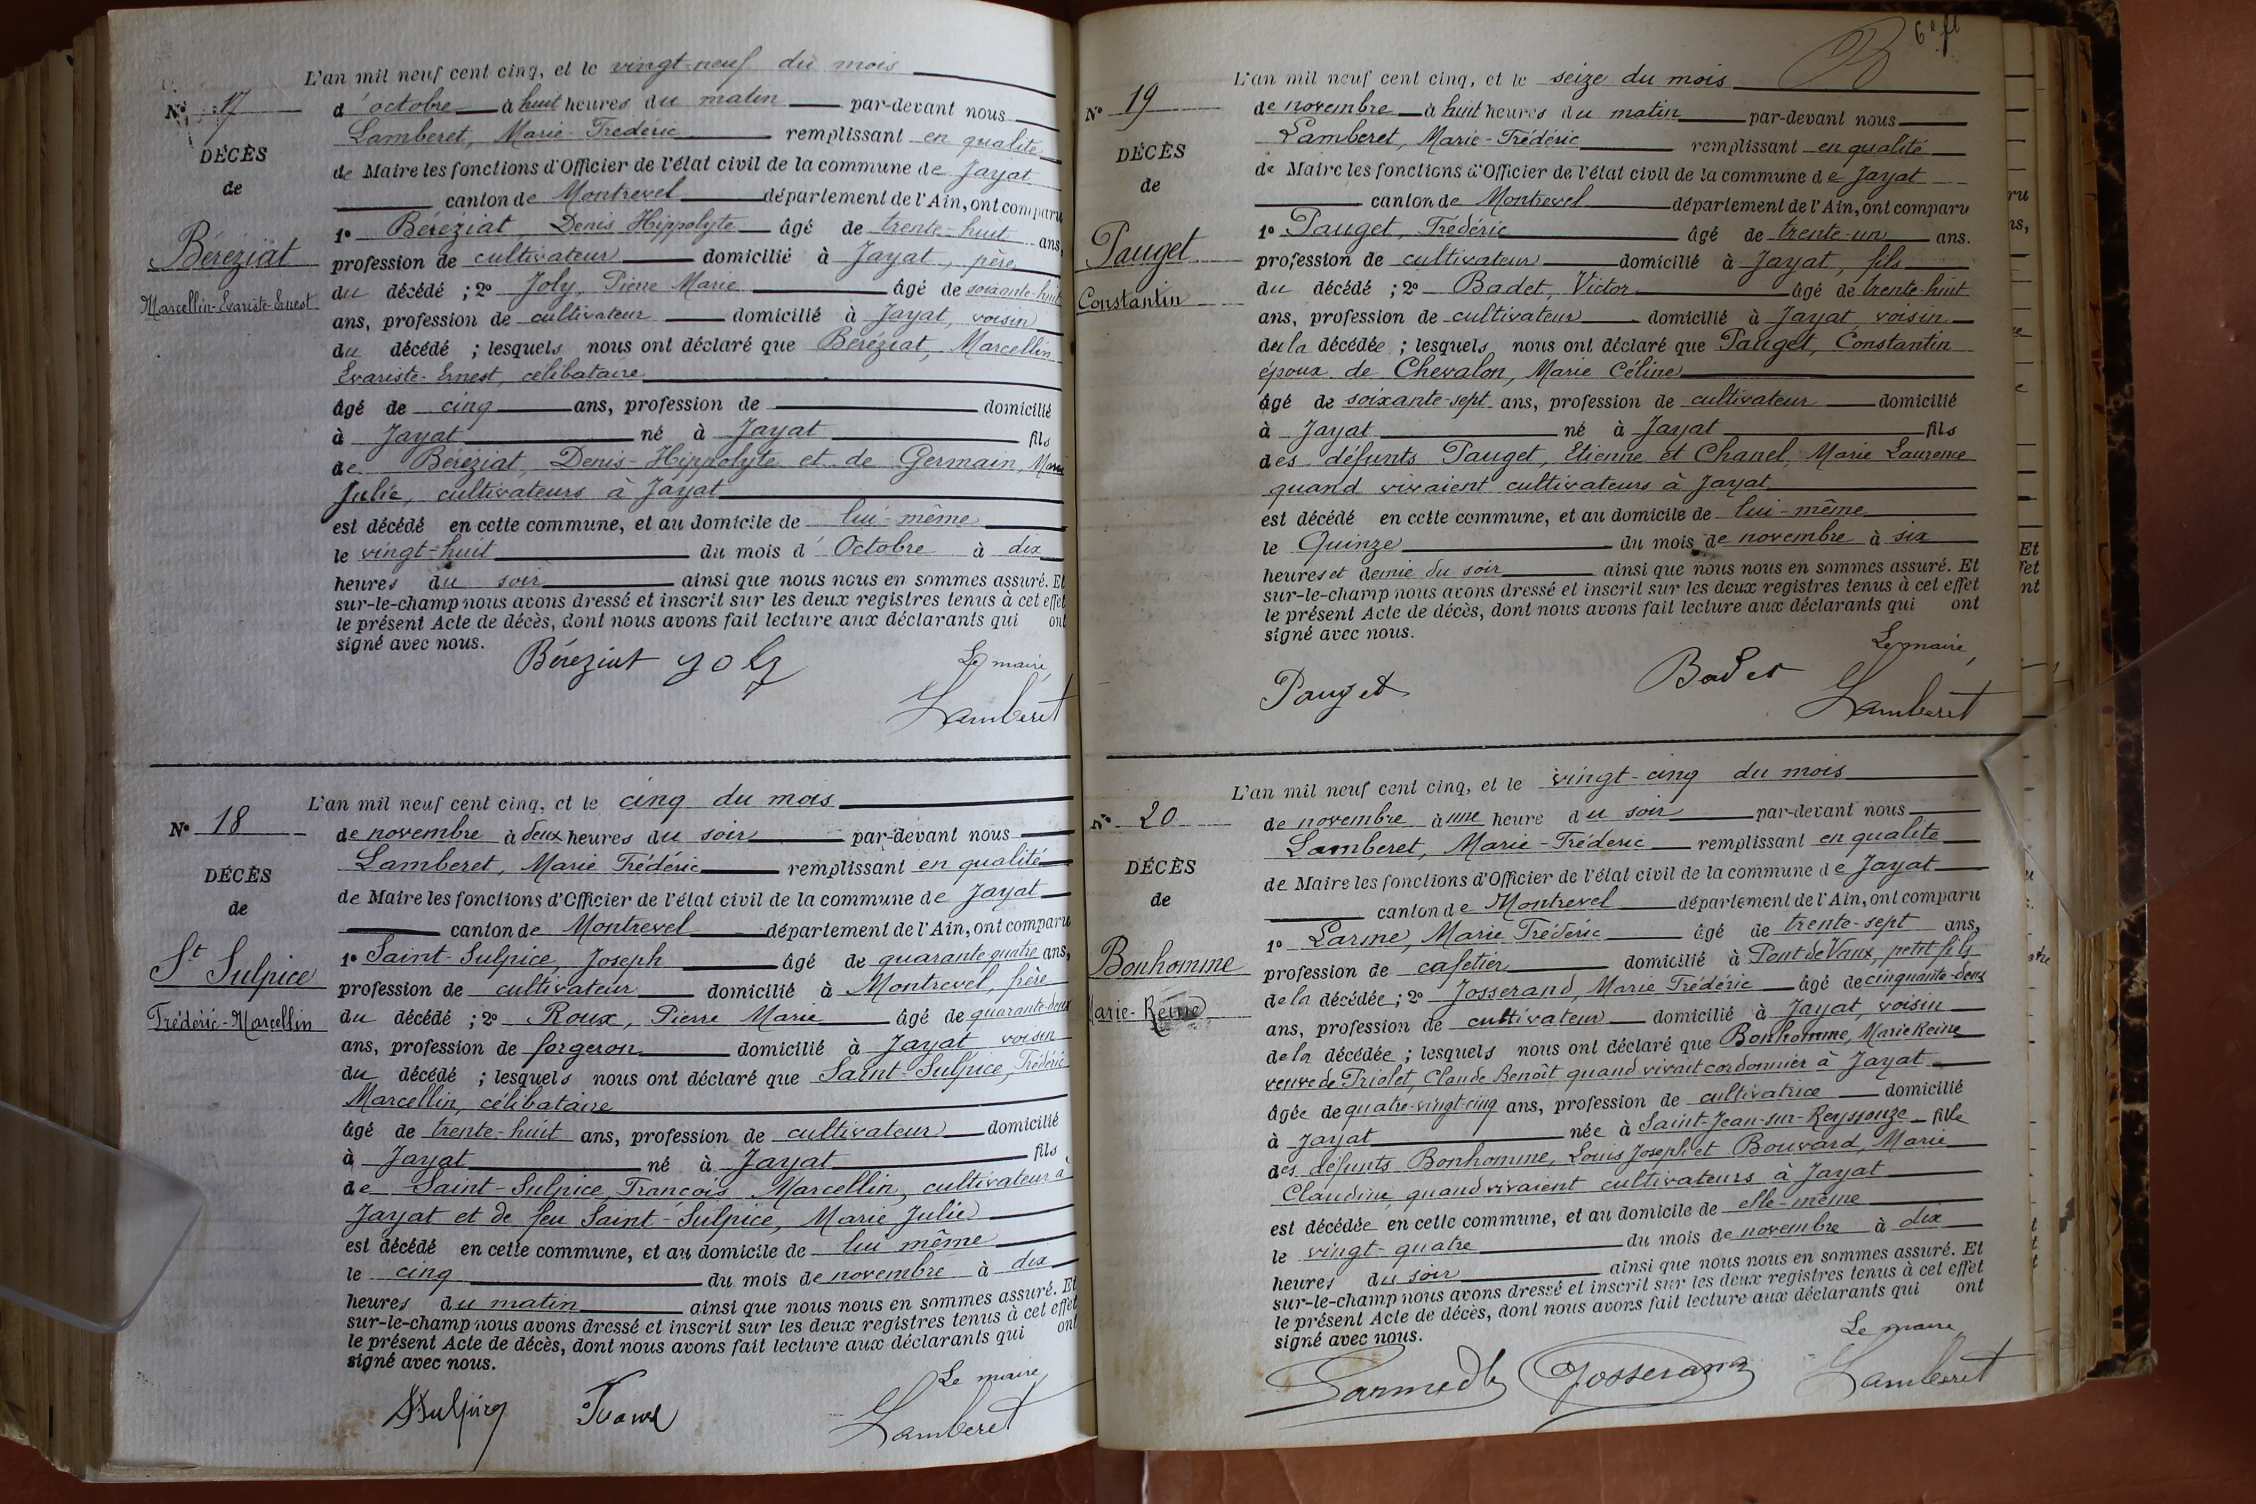 N° 17
DÉCÈS
de
Béréziat
Marcellin-Evariste-Ernest
L'an mil neuf cent cinq, et le vingt-neuf du mois
d'octobre à huit heures du matin par-devant nous
Lamberet, Marie-Frédéric remplissant en qualité
de Maire les fonctions d'Officier de l'état civil de la commune de Jayat
canton de Montrevel département de l'Ain, ont comparu
1° Béréziat, Denis Hippolyte âgé de trente-huit ans,
profession de cultivateur domicilié à Jayat, père
du décédé ; 2° Joly, Pierre Marie âgé de soixante-huit
ans, profession de cultivateur domicilié à Jayat, voisin
du décédé ; lesquels nous ont déclaré que Béréziat, Marcellin
Evariste-Ernest, célibataire
âgé de cinq ans, profession de domicilié
à Jayat né à Jayat fils
de Béréziat, Denis-Hippolyte et de Germain, Marie
Julie, cultivateurs à Jayat
est décédé en cette commune, et au domicile de lui-même
le vingt-huit du mois d'Octobre à dix
heures du soir ainsi que nous nous en sommes assuré. Et
sur-le-champ nous avons dressé et inscrit sur les deux registres tenus à cet effet
le présent Acte de décès, dont nous avons fait lecture aux déclarants qui ont
signé avec nous.
Béréziat Joly
Le maire,
Lamberet
N° 18
DÉCÈS
de
St Sulpice
Frédéric-Marcellin
L'an mil neuf cent cinq, et le cinq du mois
de novembre à deux heures du soir par-devant nous
Lamberet, Marie Frédéric remplissant en qualité
de Maire les fonctions d'Officier de l'état civil de la commune de Jayat
canton de Montrevel département de l'Ain, ont comparu
1° Saint-Sulpice, Joseph âgé de quarante quatre ans,
profession de cultivateur domicilié à Montrevel, frère
du décédé ; 2° Roux, Pierre Marie âgé de quarante-deux
ans, profession de forgeron domicilié à Jayat voisin
du décédé ; lesquels nous ont déclaré que Saint-Sulpice, Frédéric
Marcellin, célibataire
âgé de trente-huit ans, profession de cultivateur domicilié
à Jayat né à Jayat fils
de Saint-Sulpice, François Marcellin, cultivateur à
Jayat et de feu Saint-Sulpice, Marie Julie
est décédé en cette commune, et au domicile de lui même
le cinq du mois de novembre à dix
heures du matin ainsi que nous nous en sommes assuré. Et
sur-le-champ nous avons dressé et inscrit sur les deux registres tenus à cet effet
le présent Acte de décès, dont nous avons fait lecture aux déclarants qui ont
signé avec nous.
Le maire,
Lamberet
N° 19
DÉCÈS
de
Pauget
Constantin
L'an mil neuf cent cinq, et le seize du mois
de novembre à huit heures du matin par-devant nous
Lamberet, Marie-Frédéric remplissant en qualité
de Maire les fonctions d'Officier de l'état civil de la commune de Jayat
canton de Montrevel département de l'Ain, ont comparu
1° Pauget, Frédéric âgé de trente-un ans.
profession de cultivateur domicilié à Jayat, fils
du décédé ; 2° Badet, Victor âgé de trente-huit
ans, profession de cultivateur domicilié à Jayat voisin
du la décédée ; lesquels nous ont déclaré que Pauget, Constantin
époux de Chevalon, Marie Céline
âgé de soixante-sept ans, profession de cultivateur domicilié
à Jayat né à Jayat fils
des défunts Pauget, Etienne et Chanel, Marie Laurence
quand vivaient cultivateurs à Jayat
est décédé en cette commune, et au domicile de lui-même
le Quinze du mois de novembre à six
heures et demie du soir ainsi que nous nous en sommes assuré. Et
sur-le-champ nous avons dressé et inscrit sur les deux registres tenus à cet effet
le présent Acte de décès, dont nous avons fait lecture aux déclarants qui ont
signé avec nous.
Le maire,
Pauget Badet Lamberet
N° 20
DÉCÈS
de
Bonhomme
Marie-Reine
L'an mil neuf cent cinq, et le vingt-cinq du mois
de novembre à une heure du soir par-devant nous
Lamberet, Marie-Fréderic remplissant en qualité
de Maire les fonctions d'Officier de l'état civil de la commune de Jayat
canton de Montrevel département de l'Ain, ont comparu
1° Larme, Marie Fréderic âgé de trente-sept ans,
profession de cafetier domicilié à Pont de Vaux, petit fils
de la décédée ; 2° Josserand, Marie Frédéric âgé de cinquante-deux
ans, profession de cultivateur domicilié à Jayat, voisin
de la décédée ; lesquels nous ont déclaré que Bonhomme, Marie Reine
veuve de Priolet, Claude Benoît quand vivait cordonnier à Jayat
âgée de quatre-vingt-cinq ans, profession de cultivatrice domicilié
à Jayat née à Saint-Jean-sur-Reyssouze fille
des défunts Bonhomme, Louis Joseph et Bouvard, Marie
Claudine, quand vivaient cultivateurs à Jayat
est décédée en cette commune, et au domicile de elle-même
le vingt-quatre du mois de novembre à dix
heures du soir ainsi que nous nous en sommes assuré. Et
sur-le-champ nous avons dressé et inscrit sur les deux registres tenus à cet effet
le présent Acte de décès, dont nous avons fait lecture aux déclarants qui ont
signé avec nous.
Le maire
Josserand Lamberet